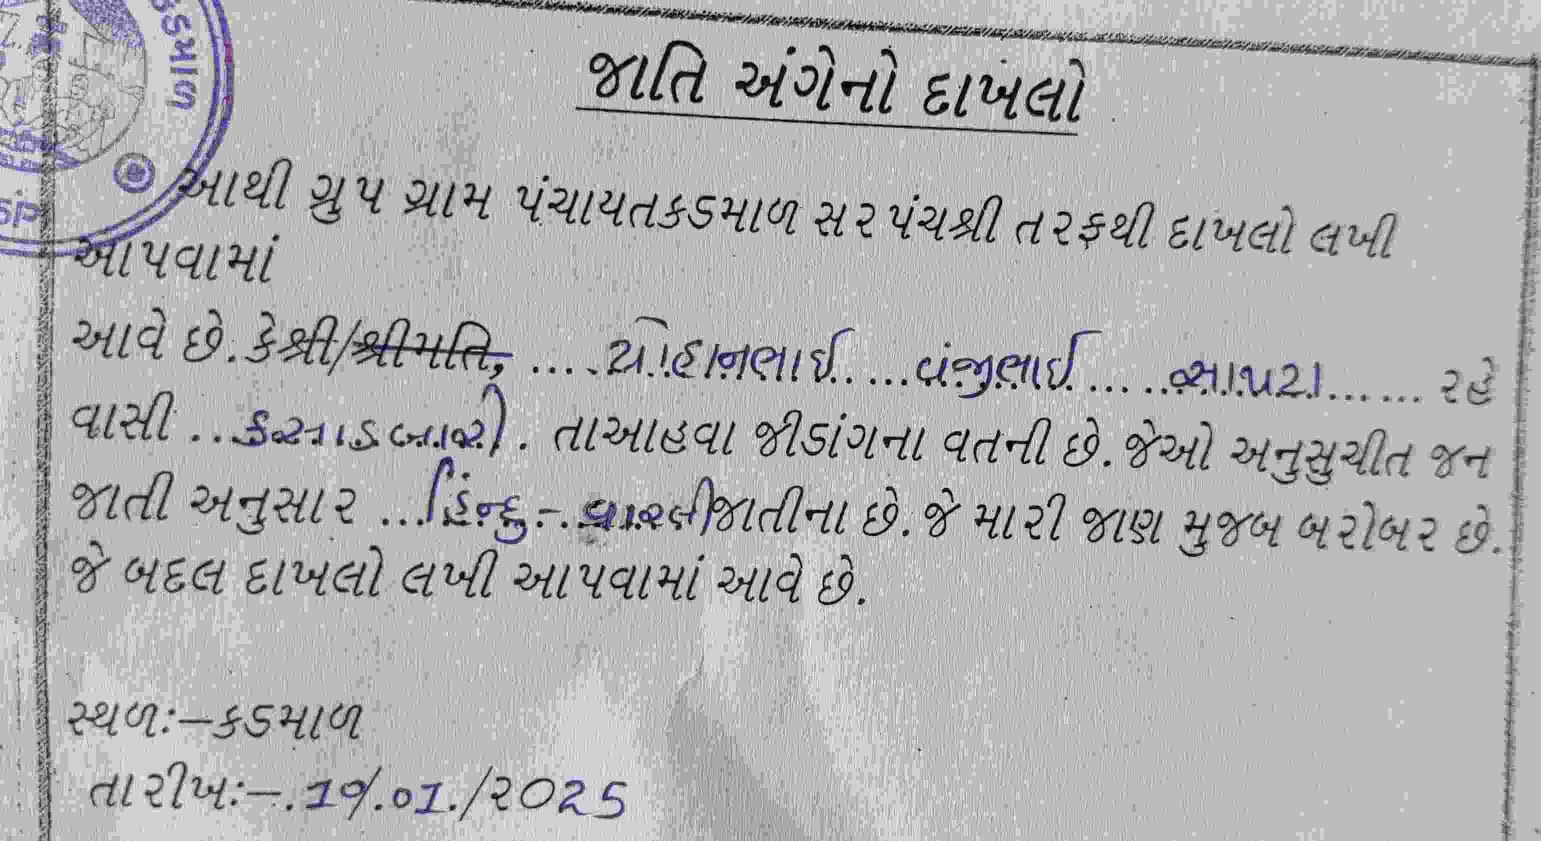 કડમાળ
જાતિ અંગેનો દાખલો
આથી ગ્રુપ ગ્રામ પંચાયતકડમાળ સરપંચશ્રી તરફથી દાખલો લખી
આપવામાં
આવે છે. કેશ્રી/શ્રીમતિ, .... યોહાનભાઈ.....વંજીભાઈ...... રહે
વાસી .. . તાઆહવા જીડાંગના વતની છે. જેઓ અનુસુચીત જન
જાતી અનુસાર ...હિન્દુ-..વારલી જાતીના છે. જે મારી જાણ મુજબ બરોબર છે.
જે બદલ દાખલો લખી આપવામાં આવે છે.
સ્થળ:-કડમાળ
તારીખ:-.19/.01./2025